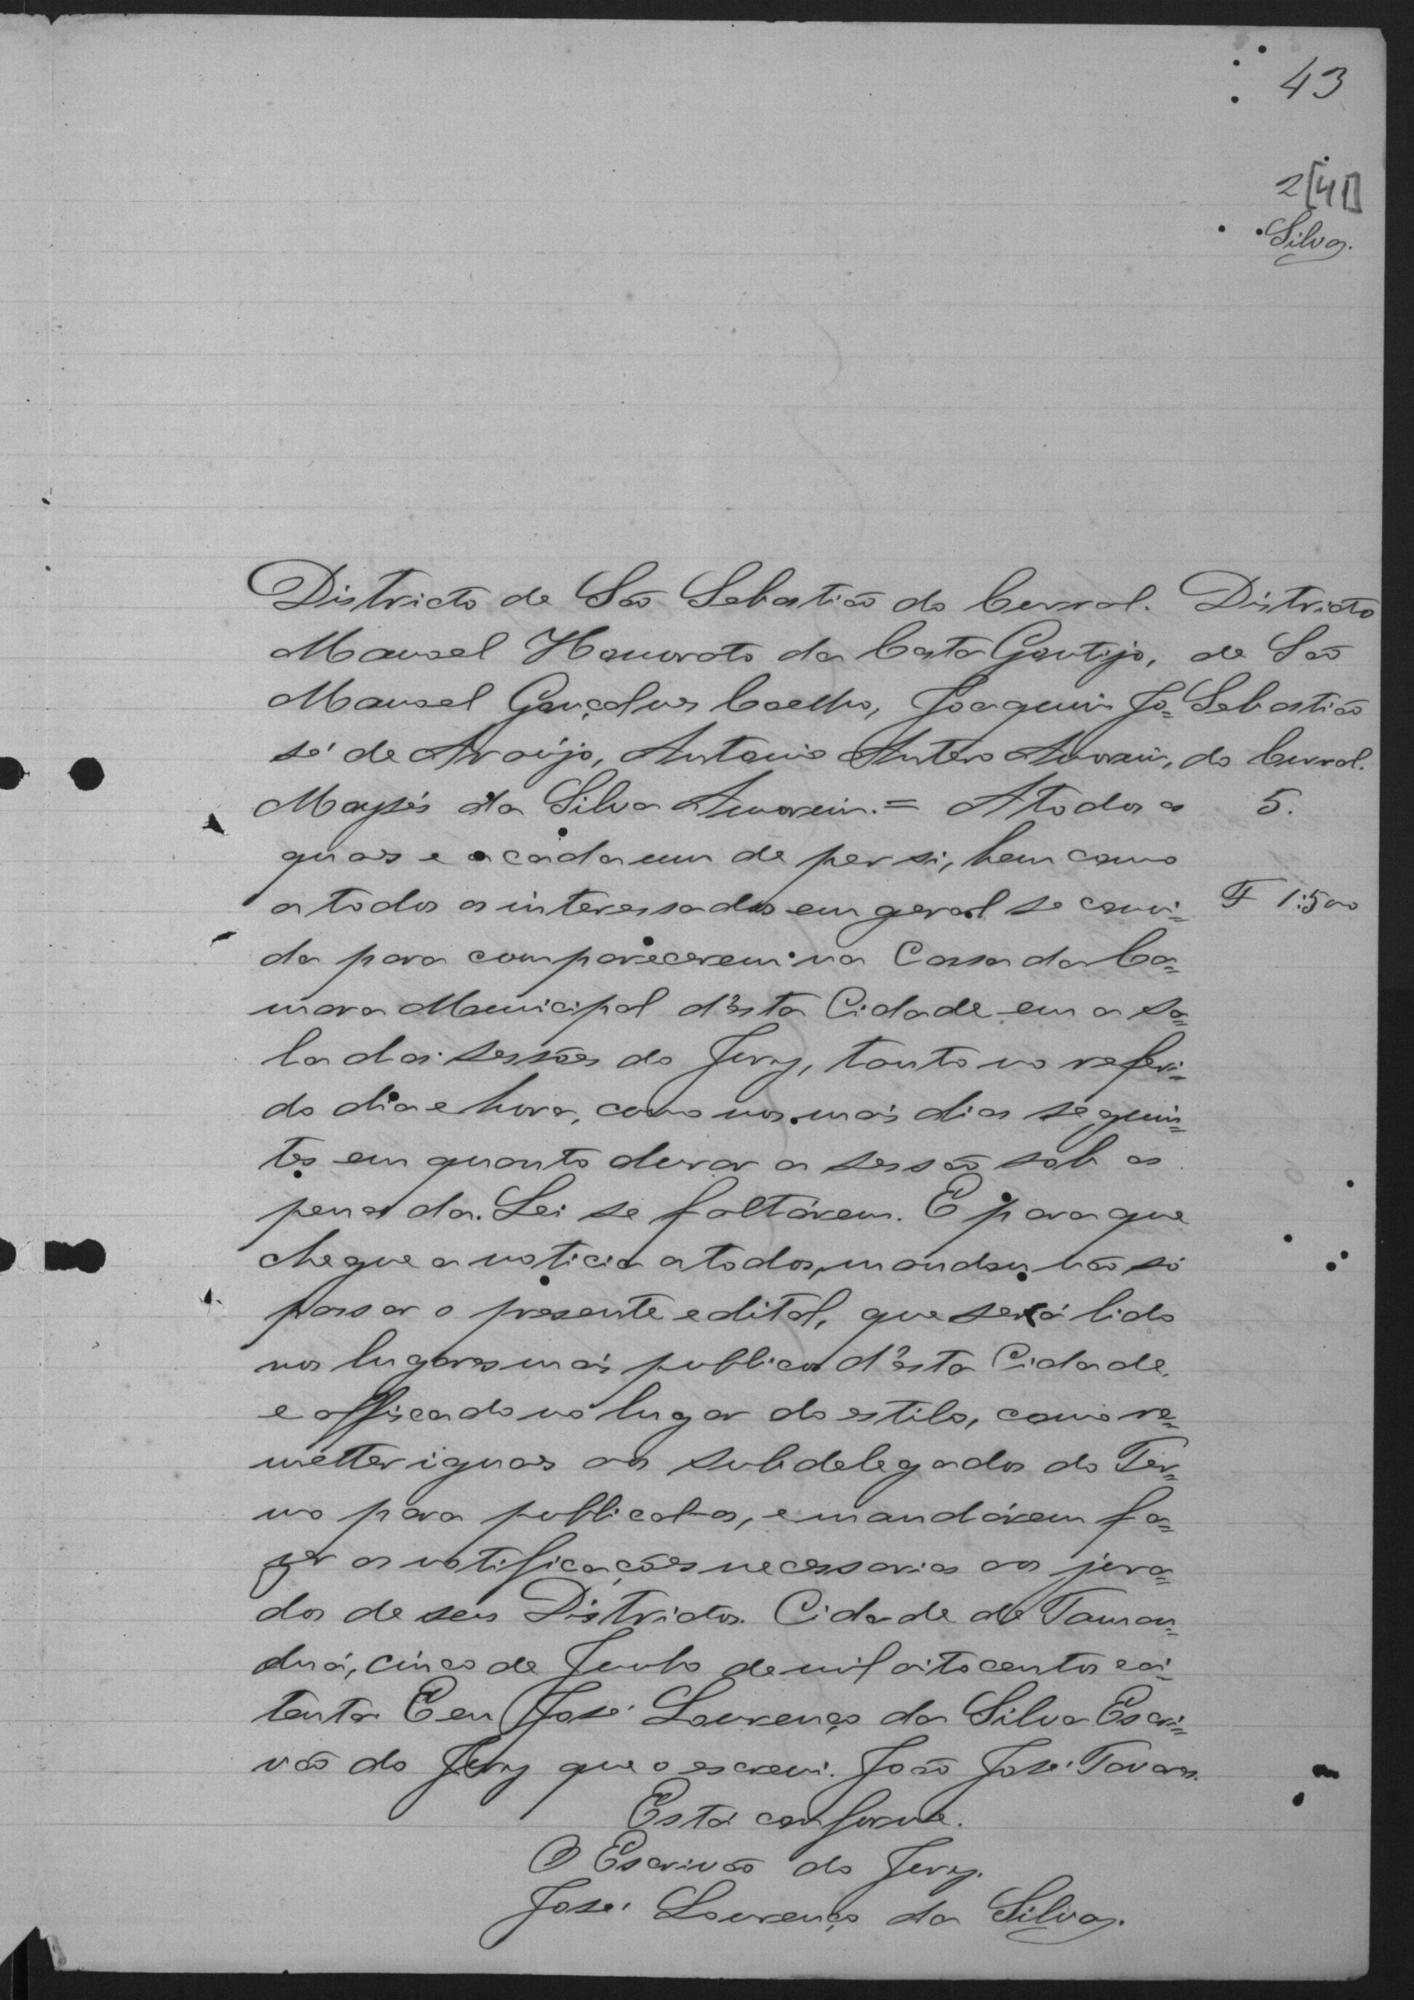 43
2[41]
Silva.
Districto de São Sebastião do Curral.
Manoel Honorato da Costa Gontijo,
Manoel Gonçalves Coelho, Joaquim Jo=
sé de Araujo, Antonio Antero Amorim,
Moysés da Silva Amorim. = A todos os
quaes e a cada um de per si, bem como
a todos os interessados em geral se convi=
da para comparecerem na Casa da Ca=
mara Municipal d'esta Cidade em a sa=
la das sessões do Jury, tanto no referi=
do dia e hora, como nos mais dias seguin=
tes em quanto durar a sessão sob as
penas da Lei se faltárem. E para que
chegue a noticia a todos, mandou não só
passar o presente edital, que será lido
nos lugares mais publicos d'esta Cidade
e affixado no lugar do estilo, como re=
metter iguaes aos subdelegados do Ter=
mo para publical-os, e mandárem fa=
zer as notificações necessarias aos jura=
dos de seus Districtos. Cidade de Taman=
duá, cinco de Junho de mil oitocentos e oi=
tenta. E eu José Lourenço da Silva Escri=
vão do Jury que o escrevi. João José Tavares.
Está conforme.
O Escrivão do Jury.
José Lourenço da Silva.
Districto
de São
Sebastião
do Curral.
5.
F 1:500